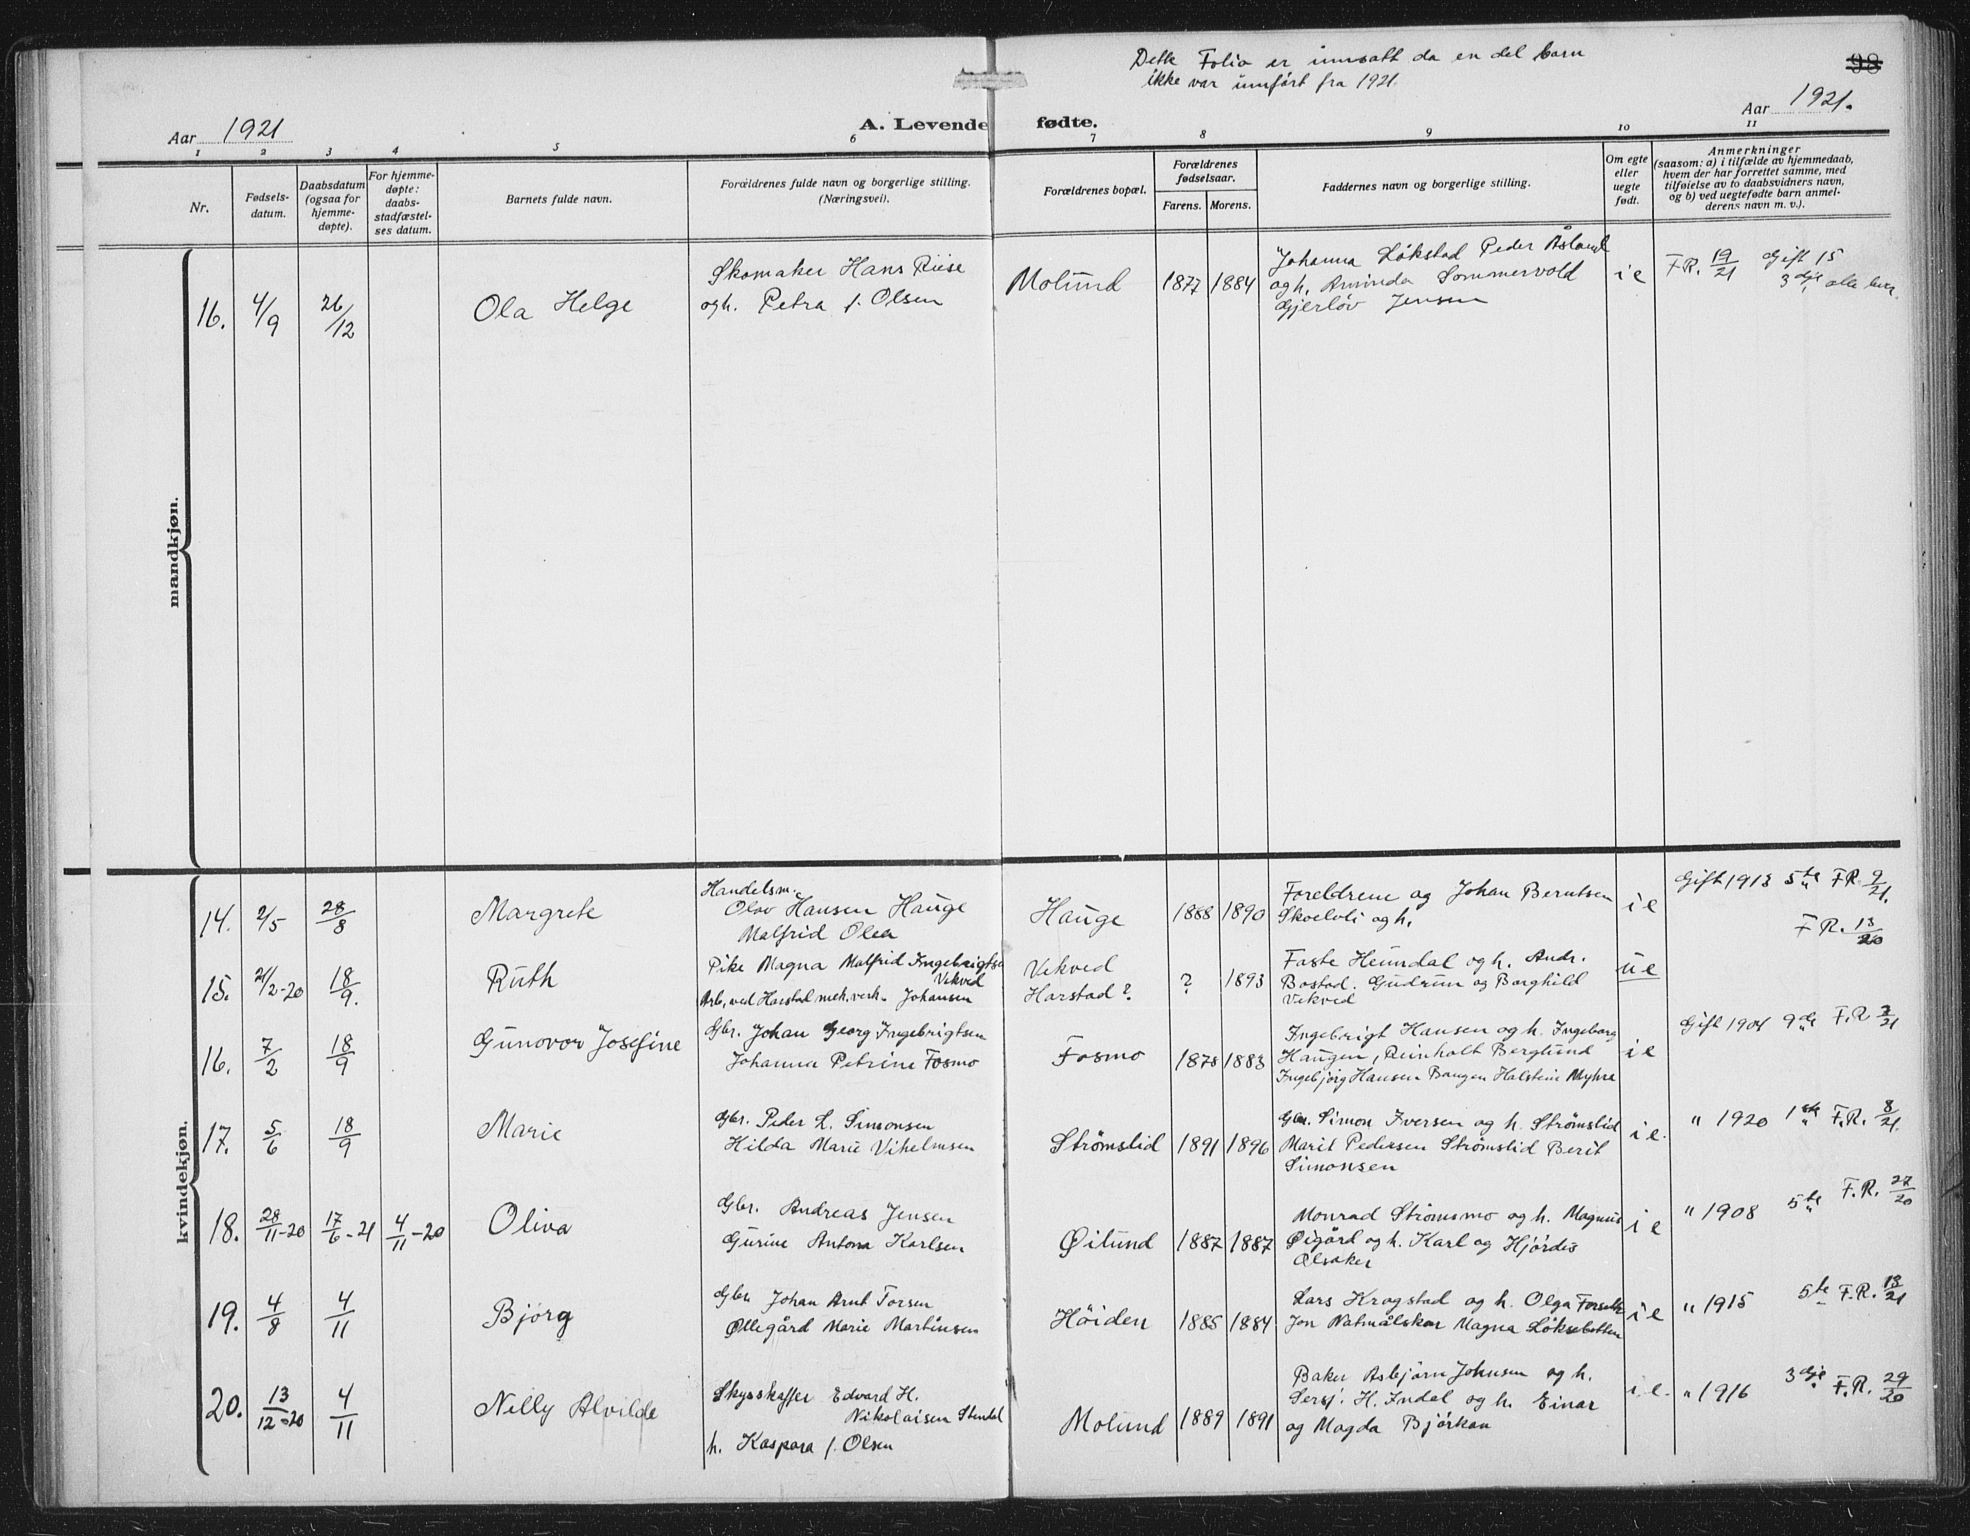 Dette Folio er innsatt da en del barn
ikke var innført fra 1921.
98
Aar 1921
A. Levende fødte.
Aar 1921.
1 2 3 4 5 6 7 8 9 10 11
Nr.
Fødsels-
datum.
Daabsdatum
(ogsaa for
hjemme-
døpte).
For hjemme-
døpte:
daabs-
stadfæstel-
ses datum.
Barnets fulde navn.
Forældrenes fulde navn og borgerlige stilling.
(Næringsvei).
Forældrenes bopæl.
Forældrenes
fødselsaar.
Farens. Morens.
Faddernes navn og borgerlige stilling.
Om egte
eller
uegte
født.
Anmerkninger
(saasom: a) i tilfælde av hjemmedaab,
hvem der har forrettet samme, med
tilføielse av to daabsvidners navn,
og b) ved uegtefødte barn anmel-
derens navn m. v.).
mandkjøn.
16. 4/9 26/12 Ola Helge
Skomaker Hans Riise
og h. Petra f. Olsen
Molund 1877 1884
Johanna Løkstad Peder Åsland
og h. Sommervold
Gjerløv Jensen
i e
F.R. 19/21 Gift 15
3dje alle lever.
kvindekjøn.
14. 2/5 28/8 Margrete
Handelsm.
Olav Hansen Hauge
Malfrid Olea
Hauge 1888 1890
Foreldrene og Johan Berntsen
Skoelvli og h.
i e
Gift 1913 5te F.R. 9/21.
F.R. 13/20
15. 21/2-20 18/9. Ruth
Pike Magna Malfrid Ingebrigtsen
Vikved
Arb. ved Harstad mek. verk. Johansen
Vikved
Harstad? ? 1893
Faste Heimdal og h. Andr.
Bostad. Gudrun og Borghild
Vikved
u e
16. 7/2 18/9 Gunovor Josefine
Gbr. Johan Georg Ingebrigtsen
Johanna Petrine Fosmo
Fosmo 1878 1883
Ingebrigt Hansen og h. Ingeborg
Haugen, Reinholt Berglund
Ingebjørg Hansen Bangen Halstein Myhra
i e
Gift 1904 9de F.R. /21
17. 5/6 18/9 Marie
Gbr. Peder L. Simonsen
Hilda Marie Vihelmsen
Strømslid 1891 1896
Gbr. Simon Iversen og h. Strømslid
Marit Pedersen Strømslid Berit
Simonsen
i e.
" 1920 1ste F.R. 8/21.
18. 28/11-20 17/6-21 4/11-20 Oliva
Gbr. Andreas Jensen
Gurine Antona Karlsen
Øilund 1887 1887
Monrad Strømsmo og h. Magnus
Øigård og h. Karl og Hjørdis
Olsaker
i e
" 1908 5te F.R. 27/20
19. 4/8 4/11 Bjørg
Gbr. Johan Arnt Torsen
Øllegård Marie Martinsen
Høiden 1885 1884
Lars Krogstad og h. Olga Forseth
Jon Natmålskar Magna Løksebotten
i e
" 1915 5te F.R. 13/21
20. 13/12-20 4/11 Nelly Alvilde
Skysskaffer Edvard H.
Nikolaisen Stendal
h. Kaspara f. Olsen
Molund 1889 1891
Baker Asbjørn Johnsen og h.
Sersj. H. Indal og h. Einar
og Magda Bjørkan
i e.
" 1916 3dje F.R. 29/20